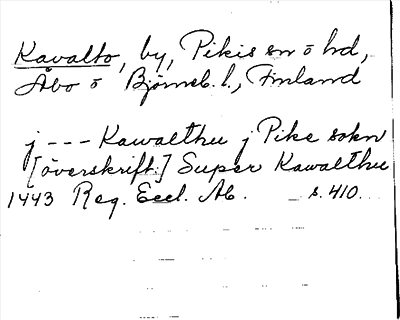 Kavalto, by, Pikis sn o hd,
Åbo o Björneb. l., Finland
j --- Kawalthu j Pike sokn
[överskrift:] Super Kawalthu
1443 Reg. Eccl. Ab. s. 410.